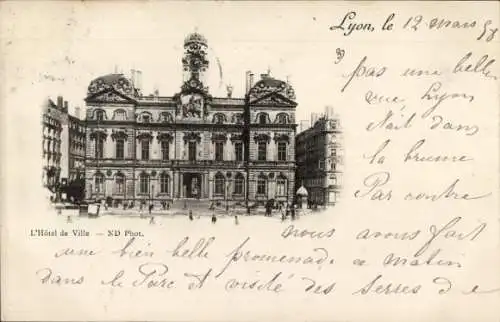 Lyon, le 12 mars 98
pas une belle
vue, Lyon
était dans
la brume
Par contre
L'Hôtel de Ville — ND Phot.
nous avons fait
une bien belle promenade ce matin
dans le Parc et visité des serres de